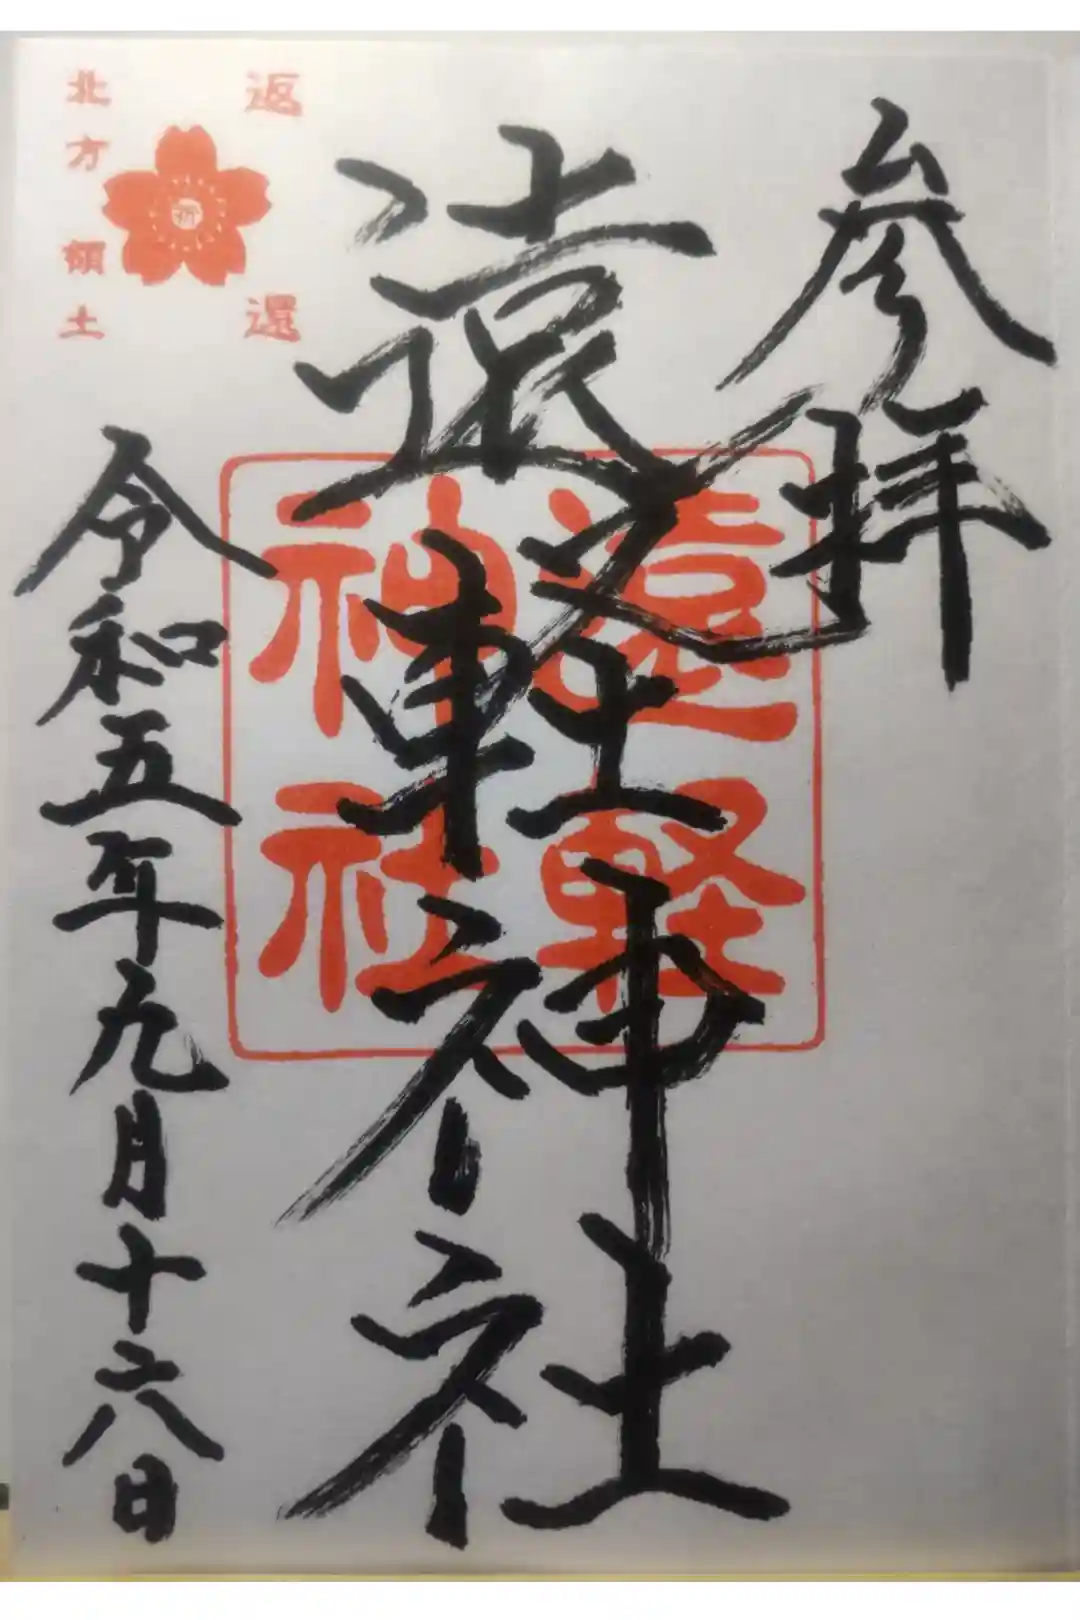 参拝
遠軽神社
遠軽
神社
返還
祈
北方領土
令和五年九月十六日